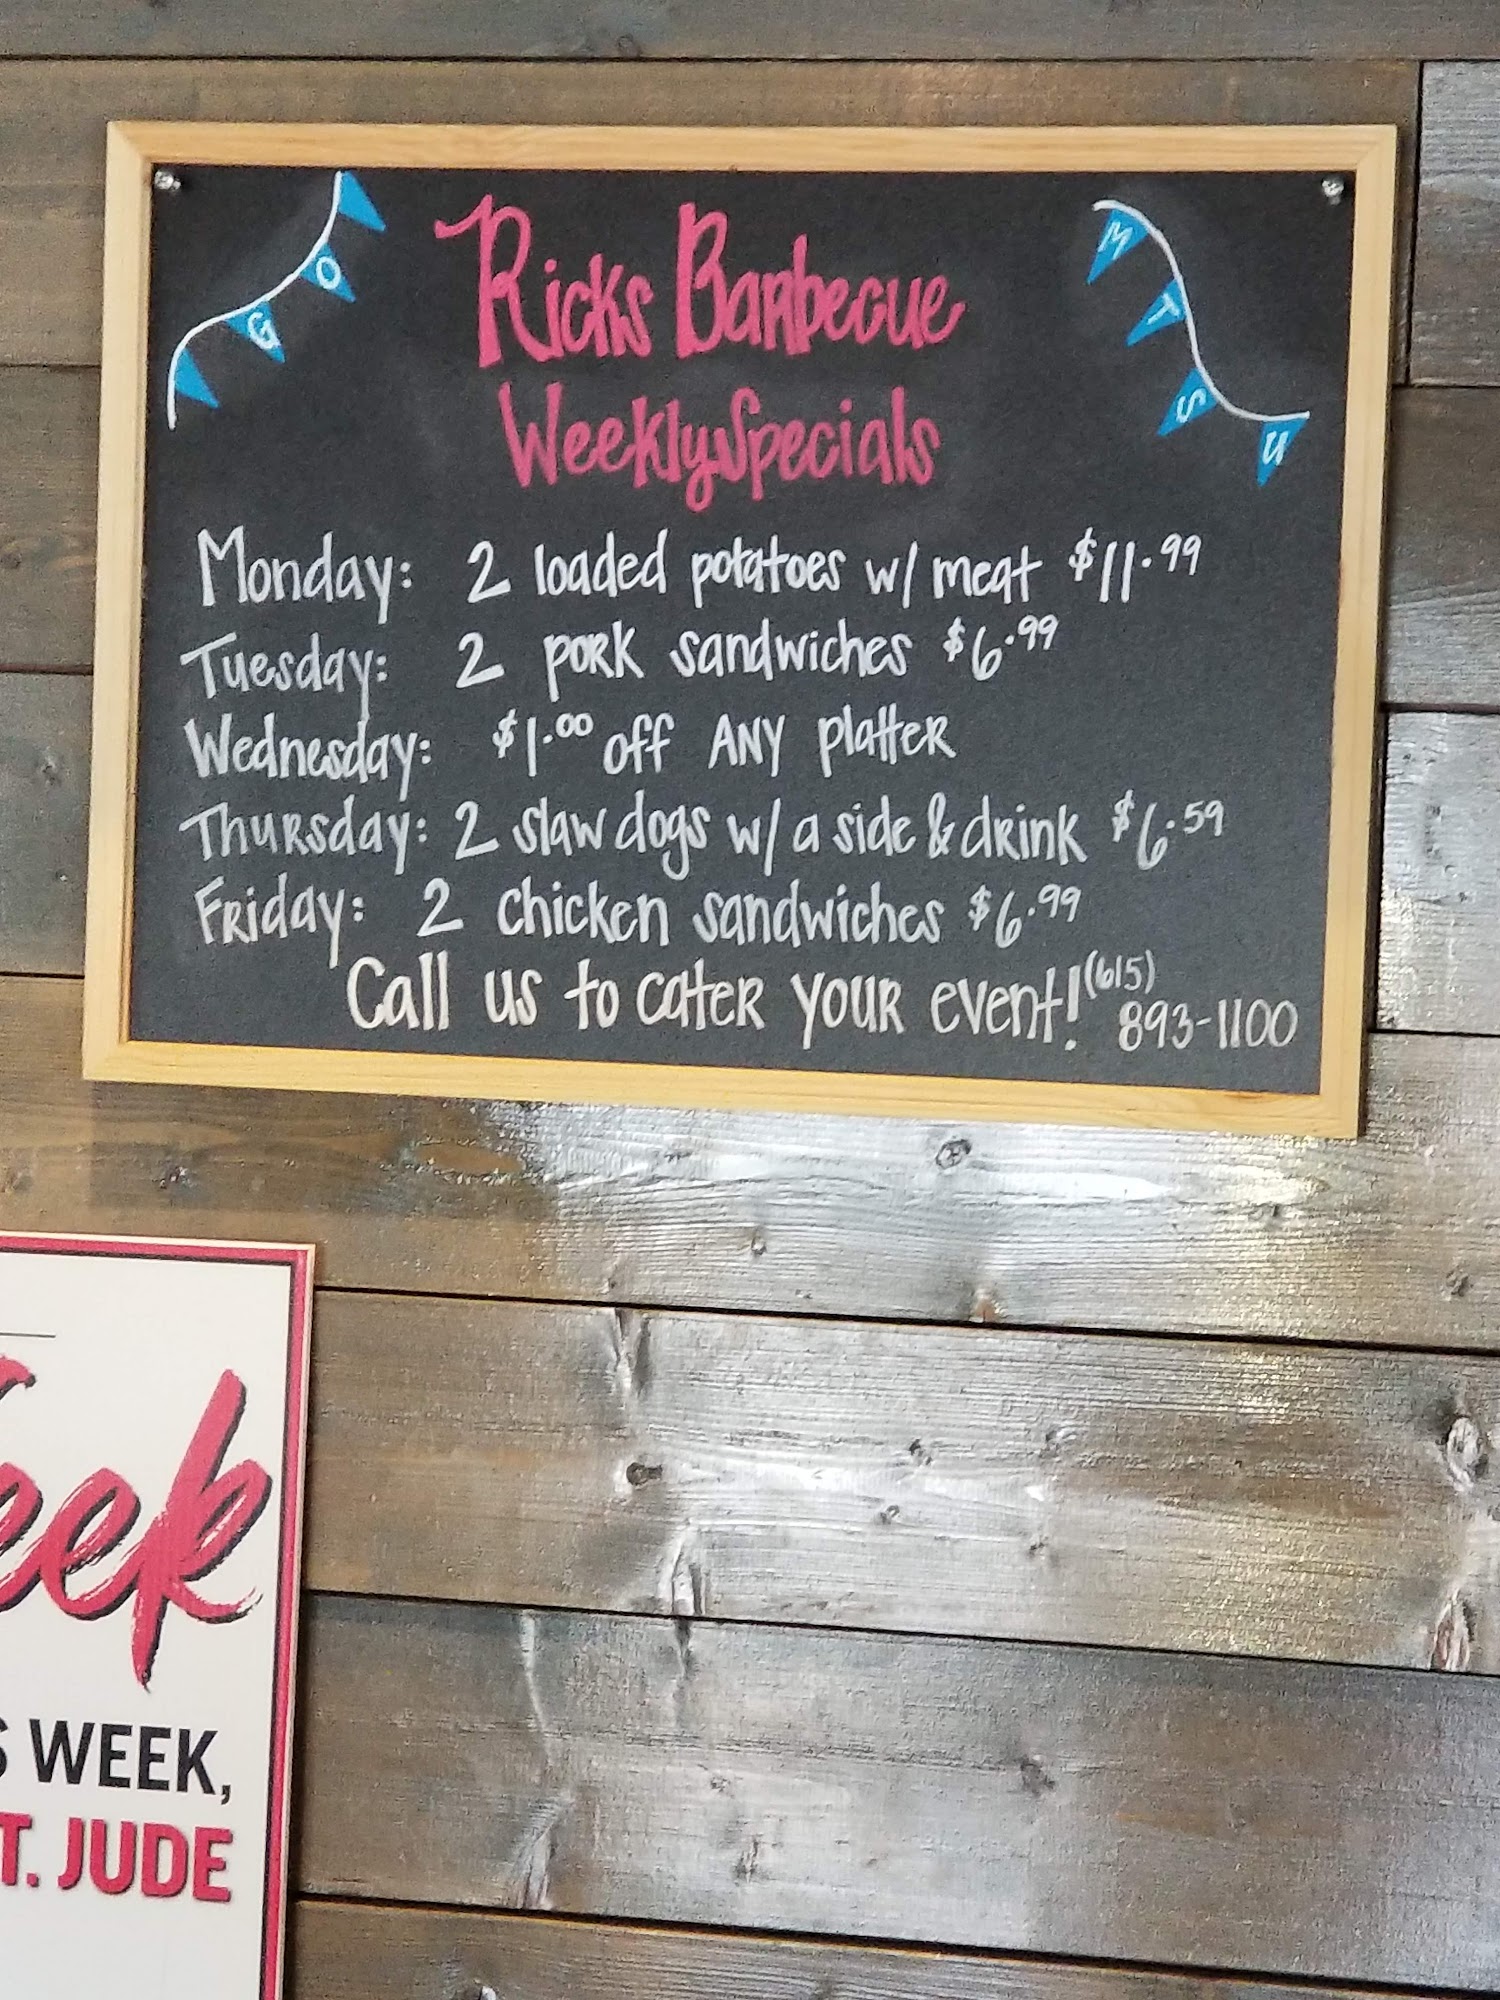 GO
MTSU
Ricks Barbecue
Weekly Specials
Monday: 2 loaded potatoes w/ meat $11.99
Tuesday: 2 pork sandwiches $6.99
Wednesday: $1.00 off ANY platter
Thursday: 2 slaw dogs w/ a side & drink $6.59
Friday: 2 chicken sandwiches $6.99
Call us to cater your event! (615) 893-1100
eek
S WEEK,
T. JUDE